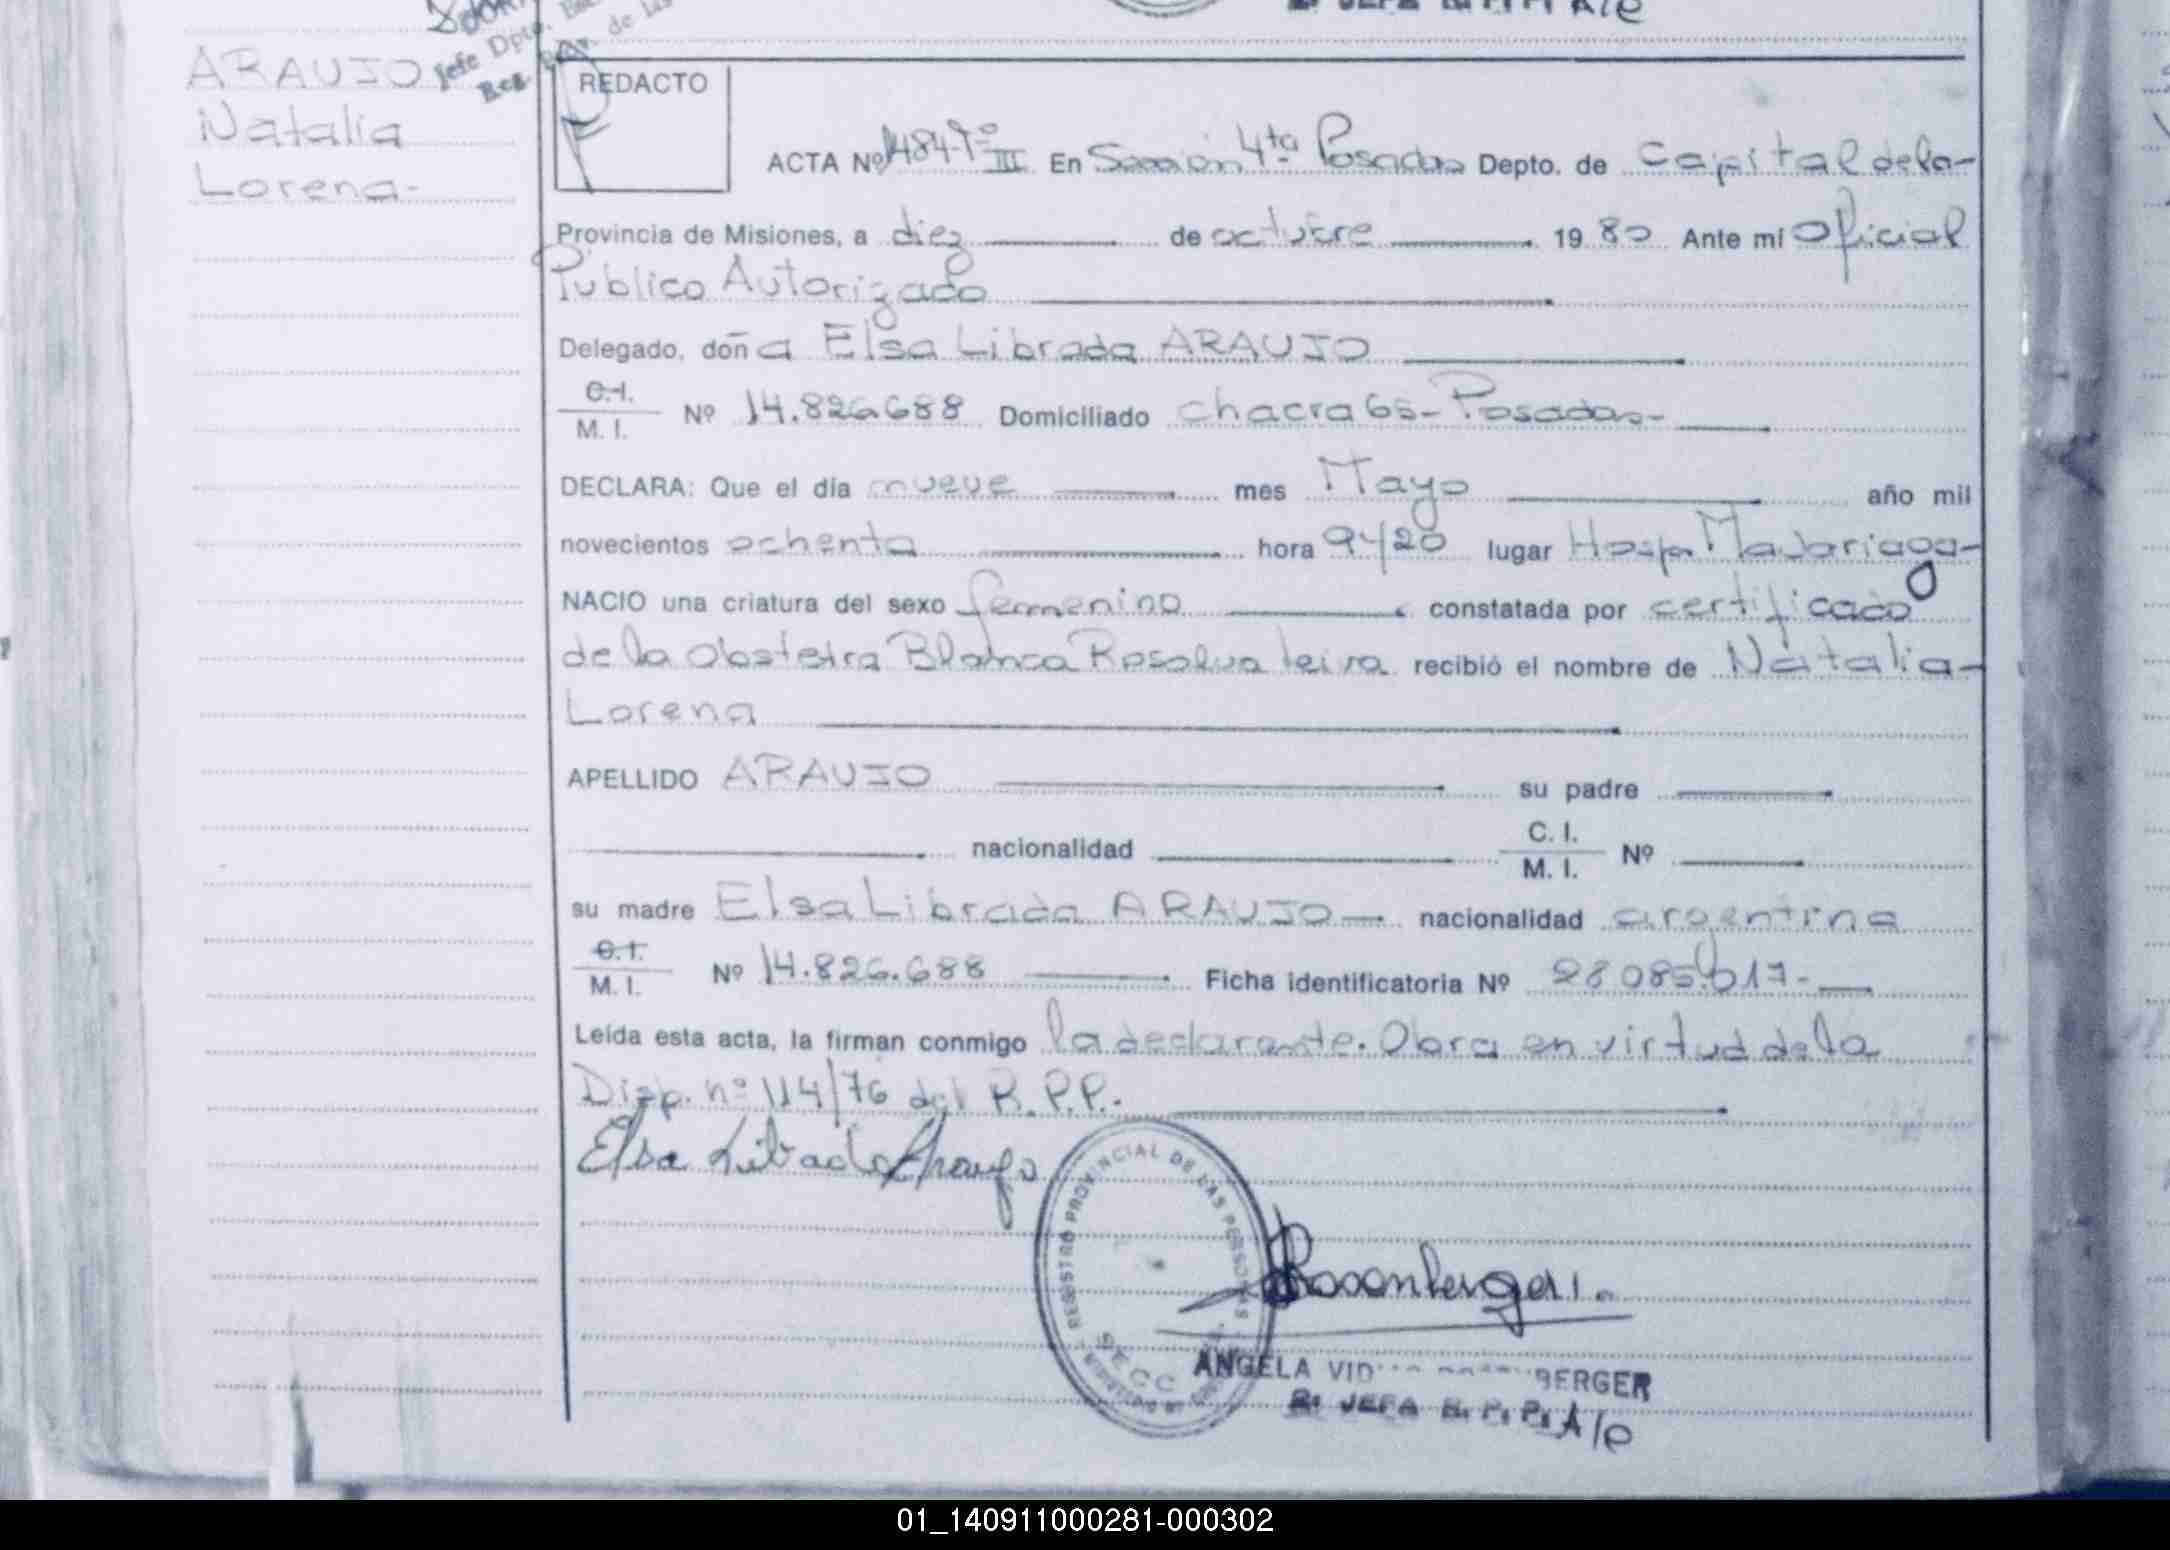 ARAUJO
Natalia
Lorena-
Jefe Dpto.
REDACTO
ACTA Nº 1484 Tº III En Sección 4ta Posadas Depto. de Capital de la-
Provincia de Misiones, a diez de octubre 1980 Ante mí Oficial
Público Autorizado
Delegado, doña Elsa Librada ARAUJO
C.I.
M. I. Nº 14.826.688 Domiciliado chacra 65- Posadas-
DECLARA: Que el día nueve mes Mayo año mil
novecientos ochenta hora 9y/20 lugar Hosp. Madariaga-
NACIO una criatura del sexo femenino constatada por certificado
de la Obstetra Blanca Rosalva Leiva recibió el nombre de Natalia-
Lorena
APELLIDO ARAUJO su padre
nacionalidad C. I.
M. I. Nº
su madre Elsa Librada ARAUJO nacionalidad argentina
C.I.
M. I. Nº 14.826.688 Ficha identificatoria Nº 28.085.617-
Leída esta acta, la firman conmigo la declarante. Obra en virtud de la
Disp. nº 114/76 del R.P.P.-
Elsa Librada Araujo
REGISTRO PROVINCIAL DE LAS PERSONAS
SECC
ANGELA VID BERGER
JEFA R. P. P. A/C
01_140911000281-000302